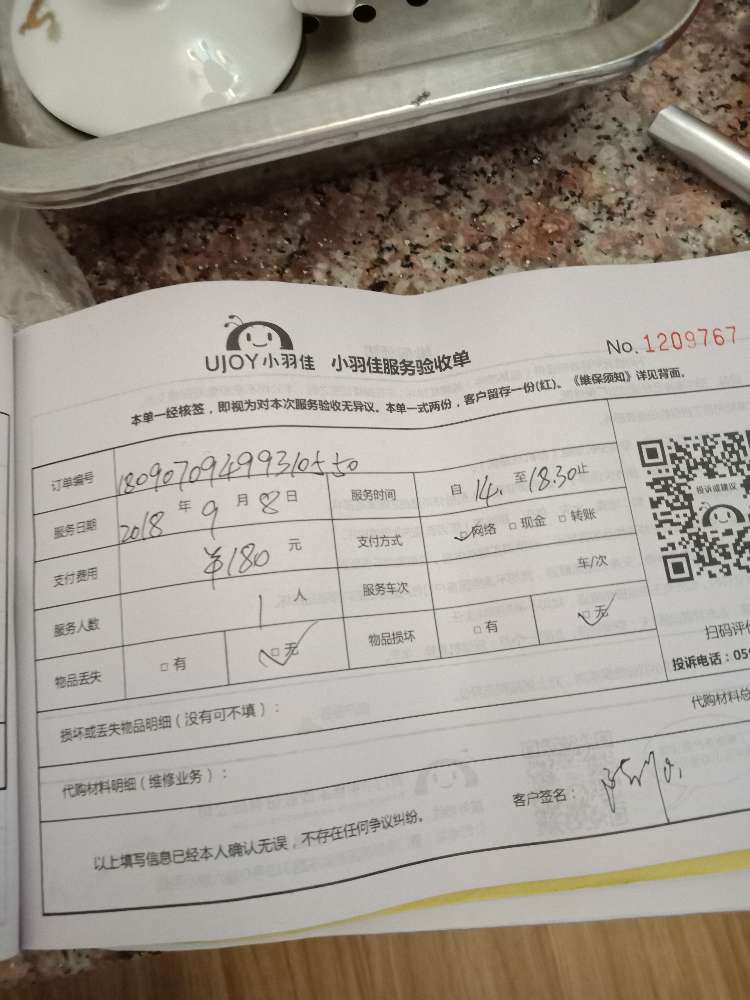 UJOY小羽佳 小羽佳服务验收单 No. 1209767
本单一经核签，即视为对本次服务验收无异议。本单一式两份，客户留存一份(红)。《维保须知》详见背面。
订单编号 18090709499310550
服务日期 2018 年 9 月 8 日 服务时间 自 14. 至 18.30 止
支付费用 ¥180 元 支付方式 □网络 □现金 □转账
服务人数 1 人 服务车次 车/次
物品丢失 □有 □无 物品损坏 □有 □无
投诉或建议
扫码评
投诉电话：059
损坏或丢失物品明细（没有可不填）：
代购材料总
代购材料明细（维修业务）：
以上填写信息已经本人确认无误，不存在任何争议纠纷。 客户签名：